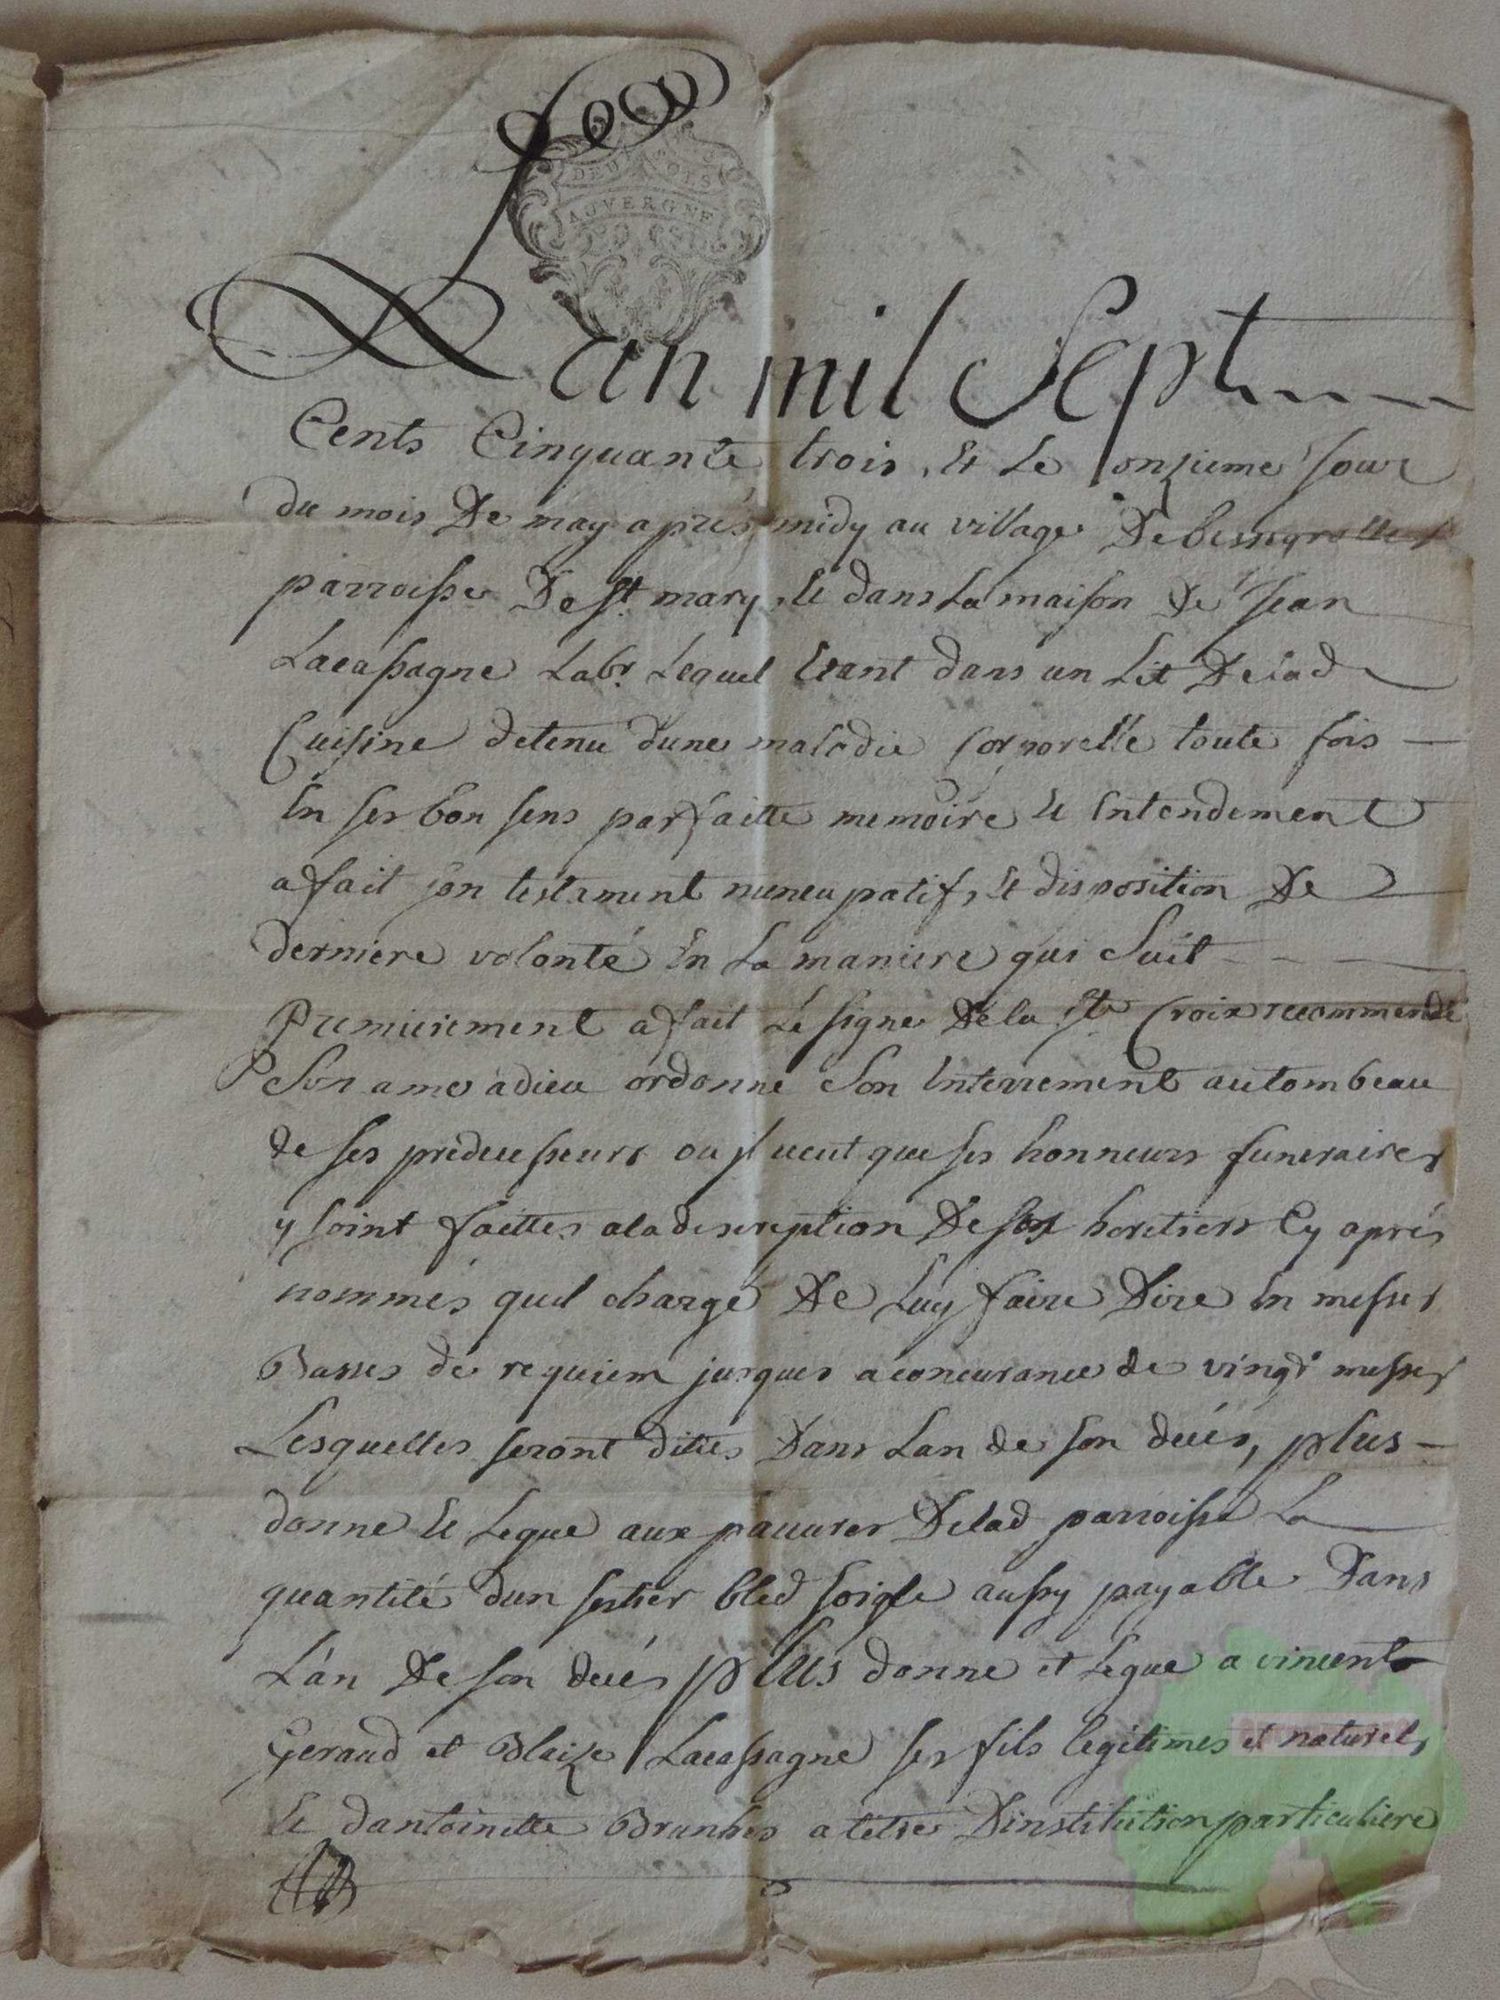 DEUX SOLS
AUVERGNE
Lan mil Sept
Cents Cinquante trois, Et Le onzieme Jour
du mois De may aprés midy au village De
parroisse De St mary, Et dans La maison De Jean
Lacassagne Labr. Lequel Etant dans un Lit De lad
Cuisine detenu dune maladie Corporelle toute fois
En ses bon sens parfaitte memoire Et Entendement
a fait son testament nuncupatif, Et disposition De
derniere volonté En La maniere qui Suit
Premierement a fait Le signe De la ste Croix recommendé
Son ame a dieu ordonne Son Enterrement au tombeau
de ses predecesseurs ou jl veut que ses honneurs funeraires
y soint faittes a la discreption De ses heretiers Cy aprés
nommés quil charge De Luy faire Dire En messes
Basses de requiem jusques a concurance de vingt messes
Lesquelles seront dittes Dans Lan de son decés, plus
donne Et Legue aux pauvres De lad parroisse La
quantité dun sestier bled soigle aussy payable Dans
L'an De son decés plus donne et Legue a vincent
Geraud et Blaize Lacassagne ses fils legitimes et naturels
Et dantoinette Brunhes a tetre Dinstitution particuliere